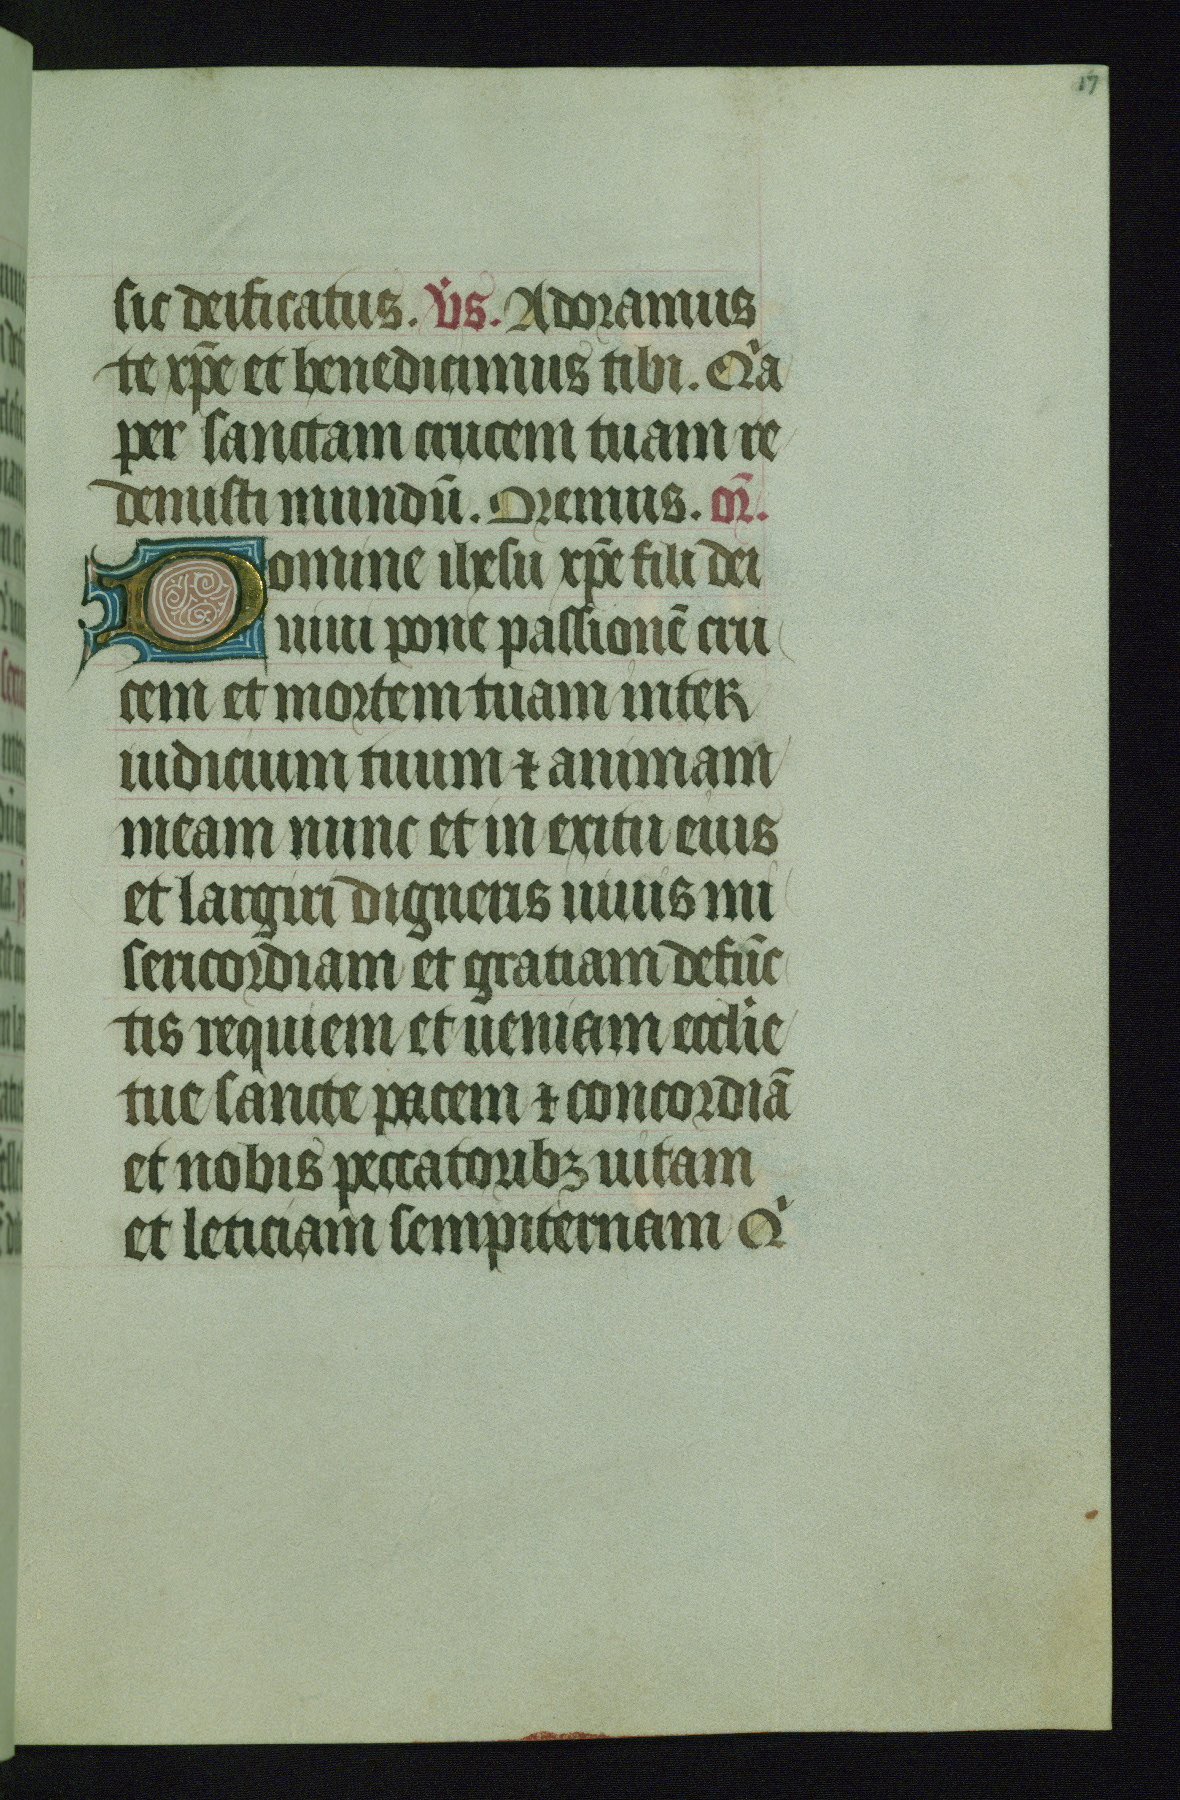 17
sic deificatus. v̇s. Adoramus
te xp̄e et benedicimus tibi. Qͥa
per sanctam crucem tuam re
demisti mundū. Oremus. or̄.
Domine ihesu xp̄e fili dei
uiui pone passionē cru
cem et mortem tuam inter
iudicium tuum ⁊ animam
meam nunc et in exitu eius
et largiri digneris uiuis mi
sericordiam et gratiam defūc
tis requiem et ueniam ecclie
tue sancte pacem ⁊ concordiā
et nobis peccatoribꝫ uitam
et leticiam sempiternam Qͥ